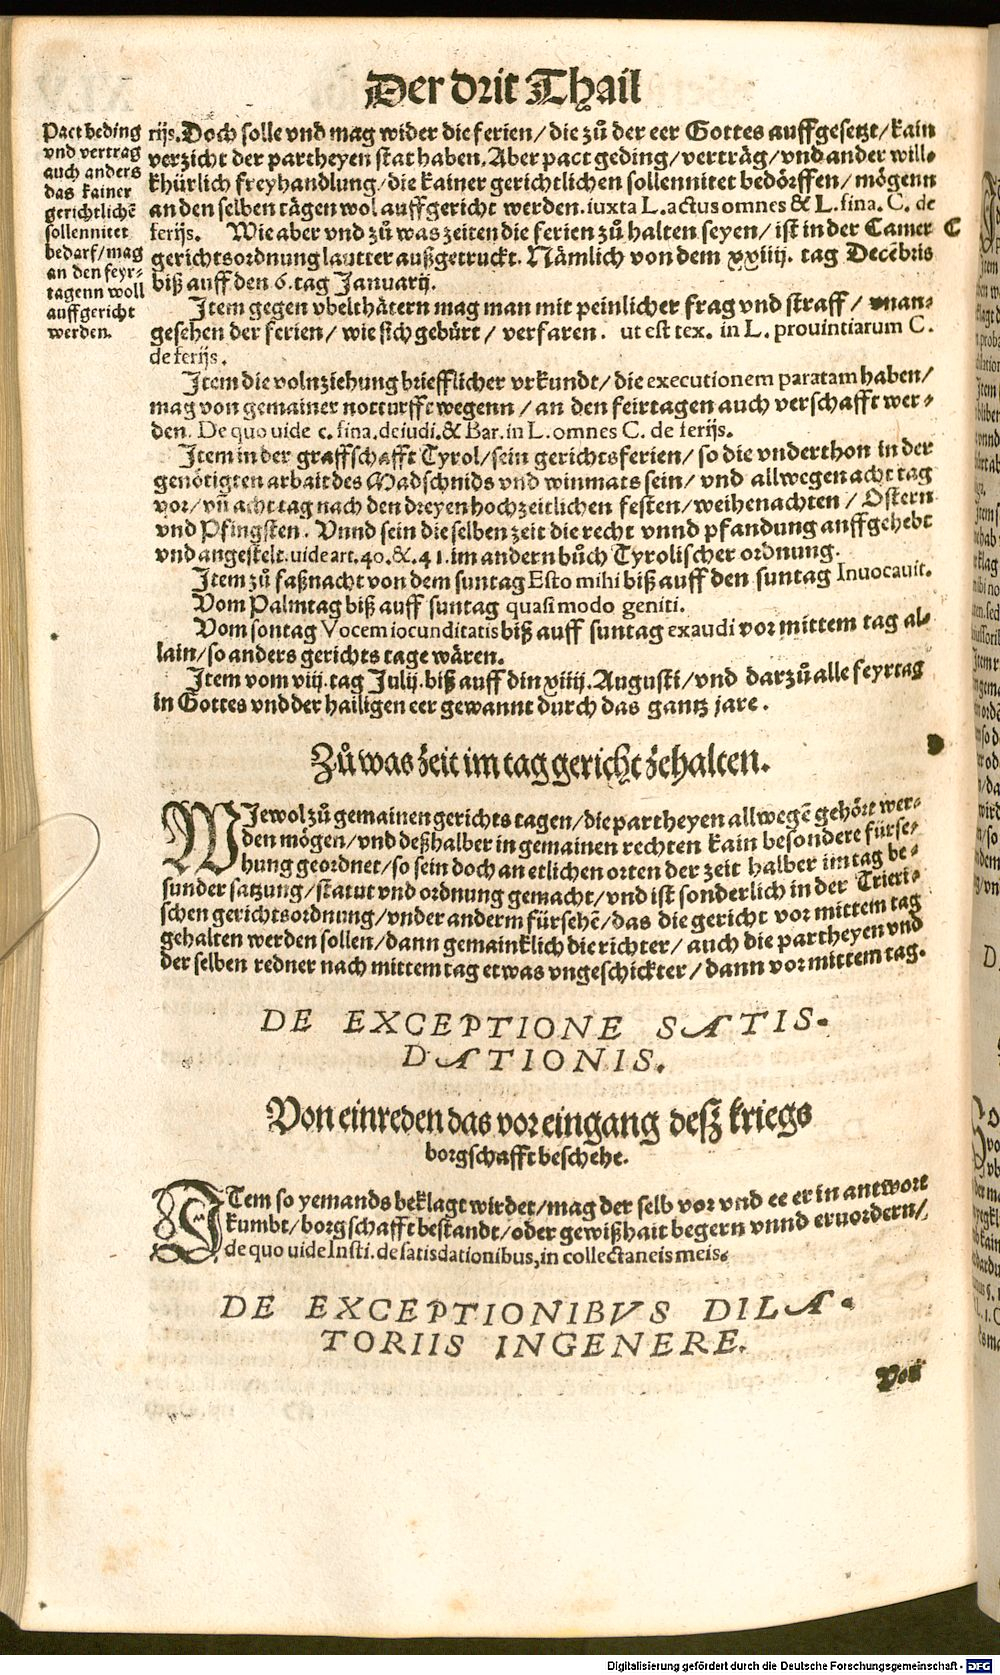 Der drit Thail
Pact beding
vnd vertrag
auch anders
das kainer
gerichtlichẽ
sollennitet
bedarf/mag
an den feyr-
tagenn woll
auffgericht
werden.
rijs. Doch solle vnd mag wider die ferien/die zů der eer Gottes auffgesetzt/kain
verzicht der partheyen stat haben. Aber pact geding/verträg/vnd ander will-
khürlich freyhandlung/die kainer gerichtlichen sollennitet bedörffen/mögenn
an den selben tägen wol auffgericht werden. iuxta L. actus omnes & L. fina. C. de
ferijs. Wie aber vnd zů was zeiten die ferien zů halten seyen/ist in der Camer C
gerichtsordnung lautter außgetruckt. Nämlich von dem xxiiij. tag Decẽbris
biß auff den 6. tag Januarij.
Item gegen vbelthätern mag man mit peinlicher frag vnd straff/vnan-
gesehen der ferien/wie sich gebürt/verfaren. ut est tex. in L. prouintiarum C.
de ferijs.
Item die volnziehung briefflicher vrkundt/die executionem paratam haben/
mag von gemainer notturfft wegenn/an den feirtagen auch verschafft wer-
den. De quo uide c. fina. de iudi. & Bar. in L. omnes C. de ferijs.
Item in der graffschafft Tyrol/sein gerichtsferien/so die vnderthon in der
genötigten arbait des Madschnids vnd winmats sein/vnd allwegen acht tag
vor/vñ acht tag nach den dreyen hochzeitlichen festen/weihenachten/Ostern
vnd Pfingsten. Vnnd sein die selben zeit die recht vnnd pfandung auffgehebt
vnd angestelt. uide art. 40. &. 41. im andern bůch Tyrolischer ordnung.
Item zů faßnacht von dem suntag Esto mihi biß auff den suntag Inuocauit.
Vom Palmtag biß auff suntag quasi modo geniti.
Vom sontag Vocem iocunditatis biß auff suntag exaudi vor mittem tag al-
lain/so anders gerichts tage wären.
Item vom viij. tag Julij. biß auff din xiiij. Augusti/vnd darzů alle feyrtag
in Gottes vnd der hailigen eer gewannt durch das gantz jare.
Zů was zeit im tag gericht zehalten.
WJewol zů gemainen gerichts tagen/die partheyen allwegẽ gehört wer-
den mögen/vnd deßhalber in gemainen rechten kain besondere fürse-
hung geordnet/so sein doch an etlichen orten der zeit halber im tag be-
sunder satzung/statut vnd ordnung gemacht/vnd ist sonderlich in der Trieri-
schen gerichtsordnung/vnder anderm fürsehẽ/das die gericht vor mittem tag
gehalten werden sollen/dann gemainklich die richter/auch die partheyen vnd
der selben redner nach mittem tag etwas vngeschickter/dann vor mittem tag.
DE EXCEPTIONE SATIS-
DATIONIS.
Von einreden das vor eingang deß kriegs
borgschafft beschehe.
ITem so yemands beklagt wirdet/mag der selb vor vnd ee er in antwort
kumbt/borgschafft bestandt/oder gewißhait begern vnnd eruordern/
de quo uide Insti. de satisdationibus, in collectaneis meis.
DE EXCEPTIONIBVS DILA-
TORIIS IN GENERE.
Von
Digitalisierung gefördert durch die Deutsche Forschungsgemeinschaft - DFG